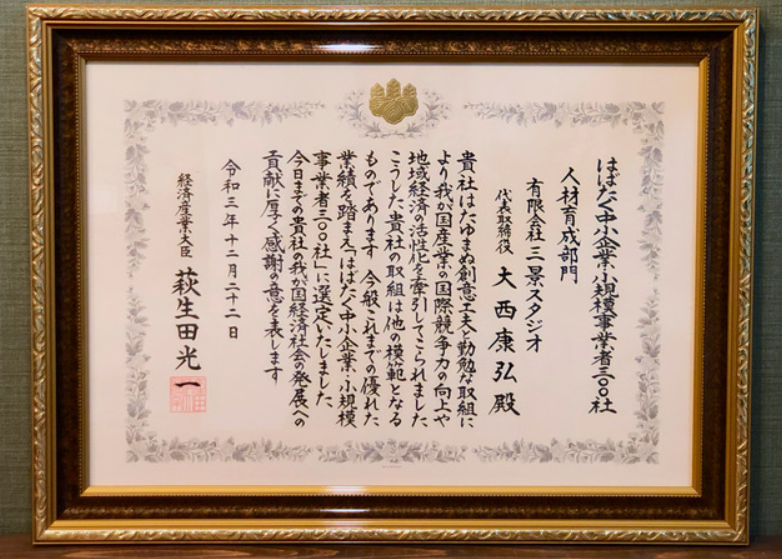 はばたく中小企業・小規模事業者三〇〇社
人材育成部門
有限会社三景スタジオ
代表取締役 大西康弘殿
貴社はたゆまぬ創意工夫と勤勉な取組に
より我が国産業の国際競争力の向上や
地域経済の活性化を牽引してこられました
こうした貴社の取組は他の模範となる
ものであります 今般これまでの優れた
業績を踏まえ「はばたく中小企業・小規模
事業者三〇〇社」に選定いたしました
今日までの貴社の我が国経済社会の発展への
貢献に厚く感謝の意を表します
令和三年十二月二十二日
経済産業大臣 萩生田光一